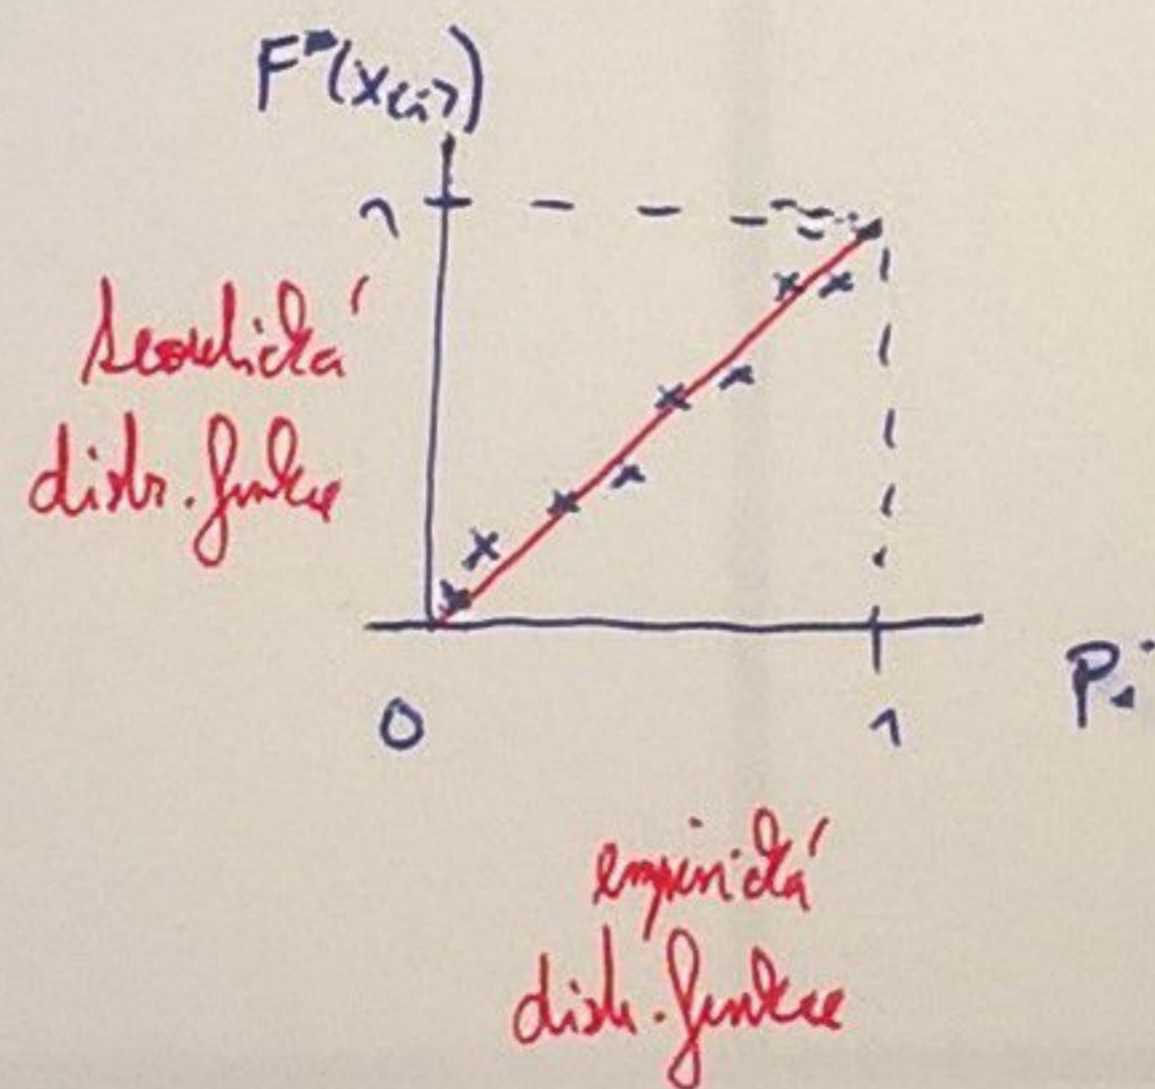 F*(x₍ᵢ₎)
1
teoretická
distr. funkce
0
1
Pᵢ
empirická
distr. funkce